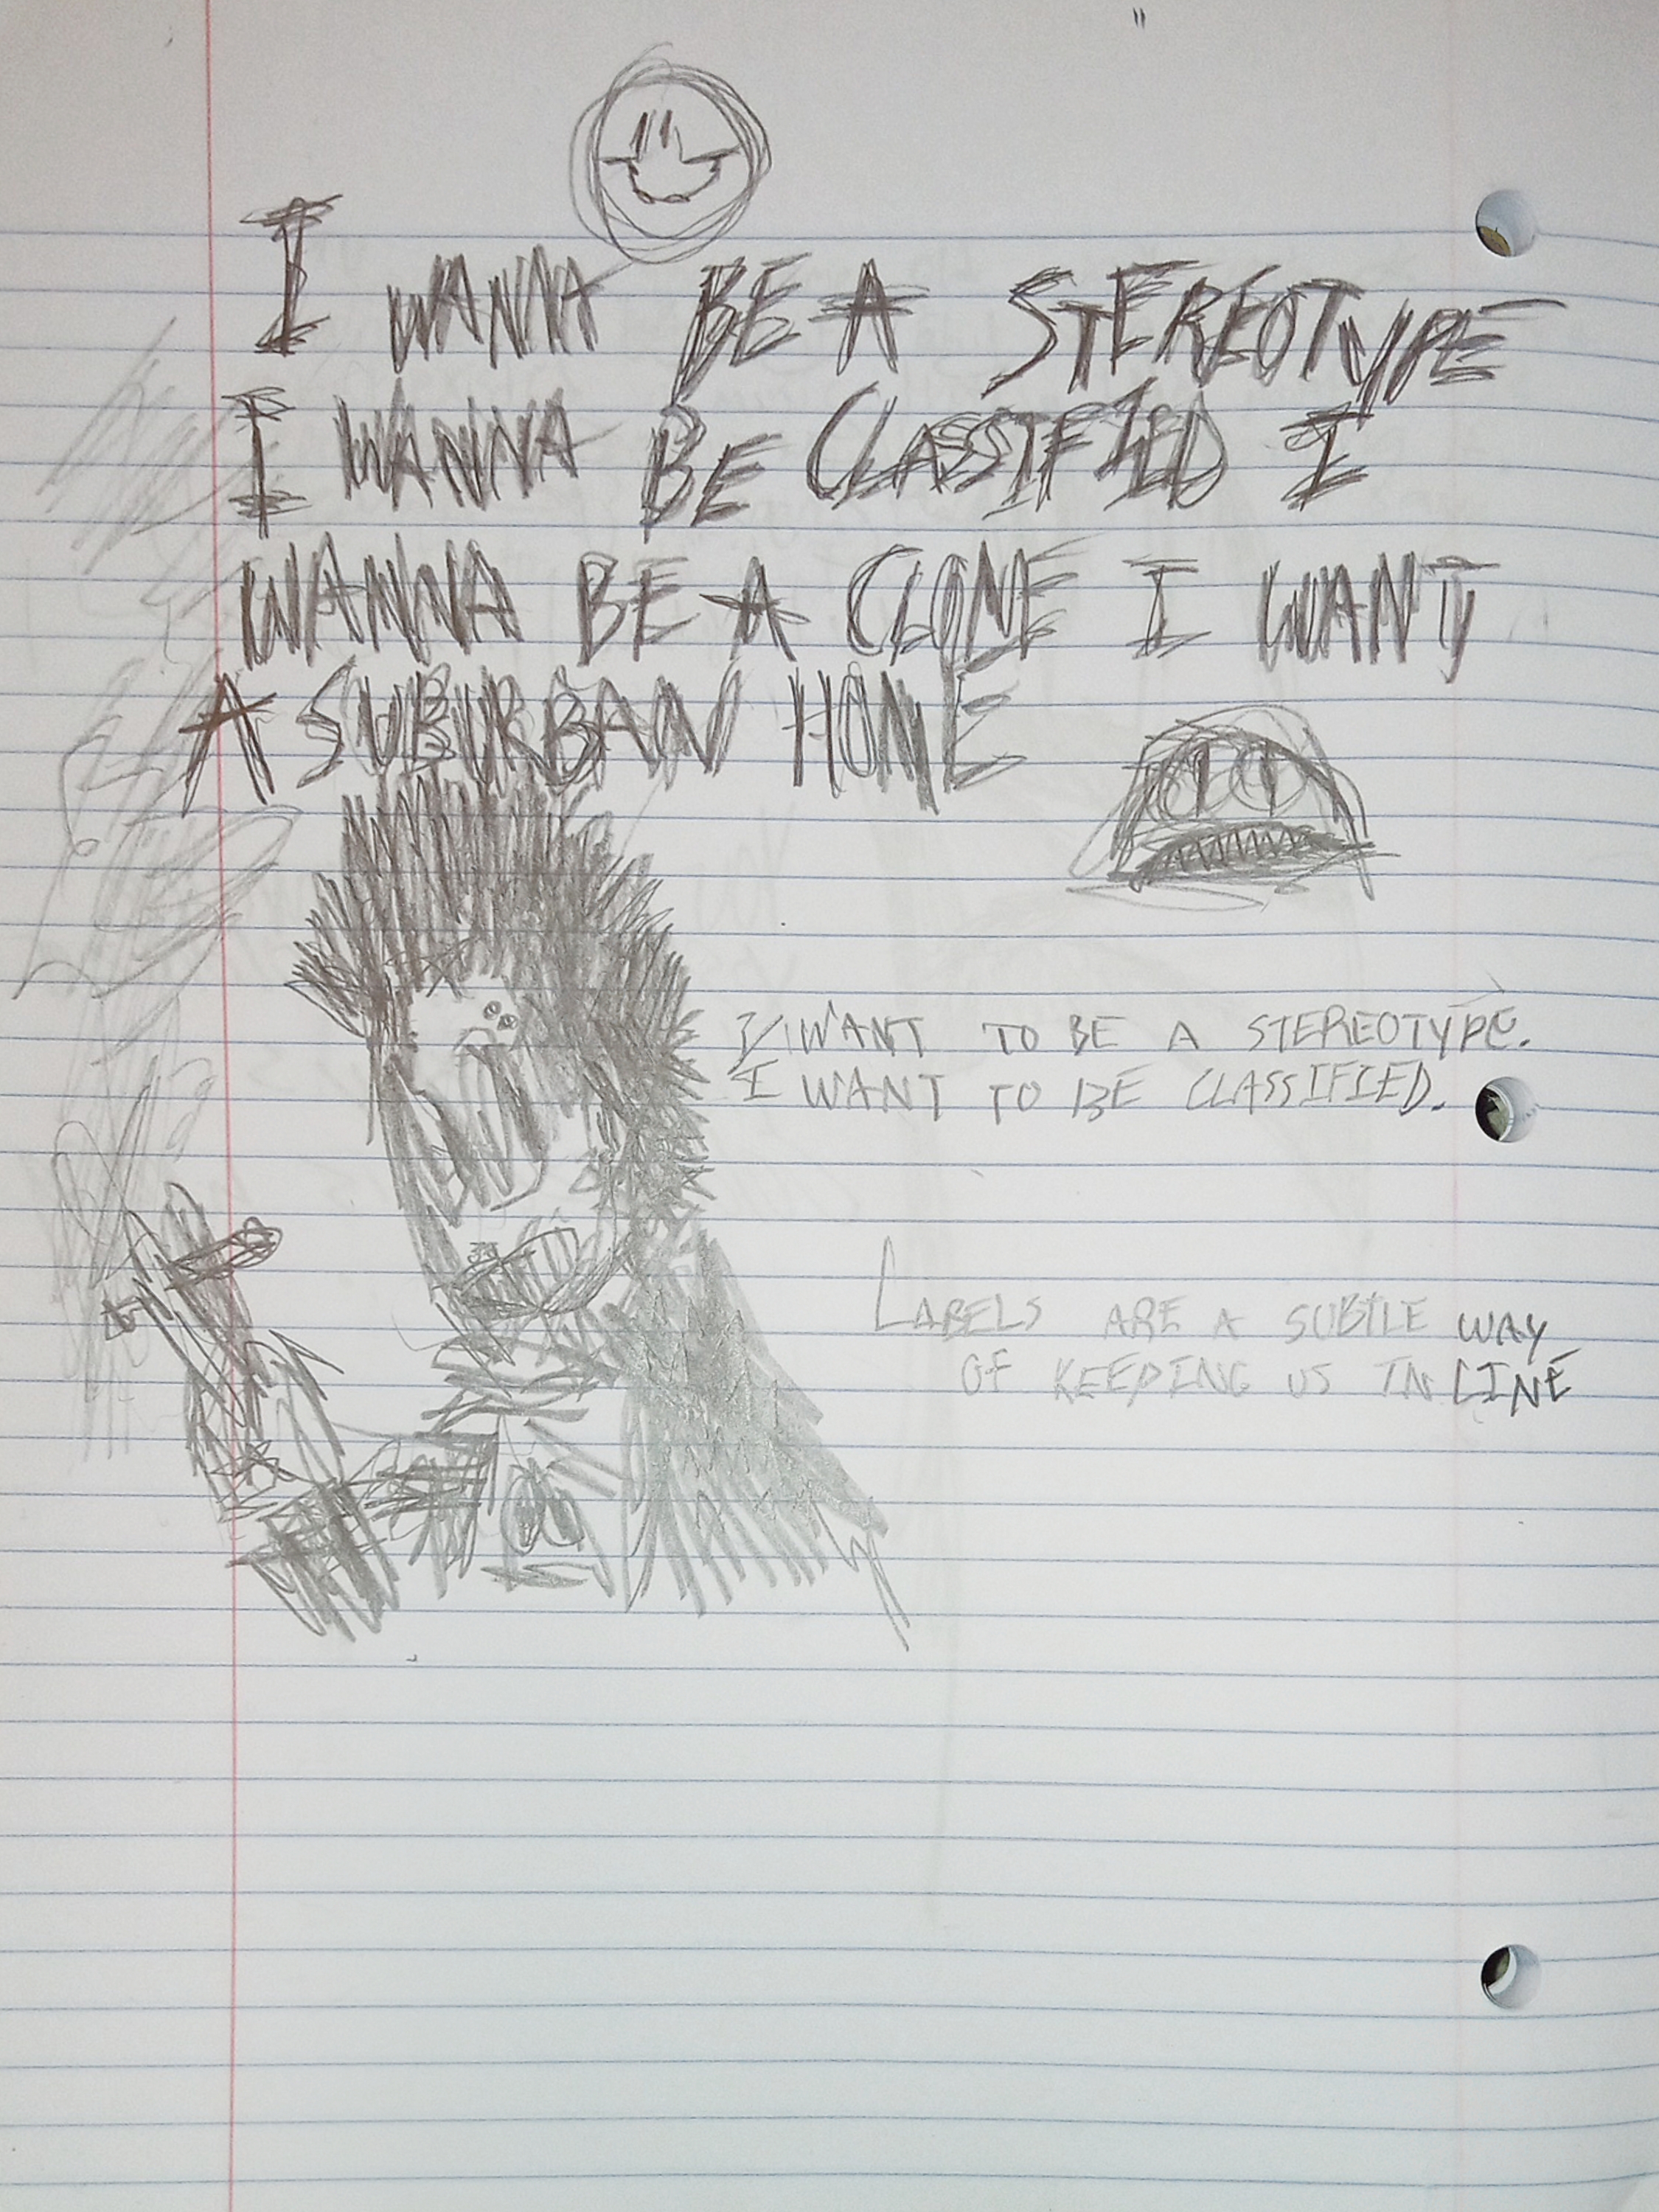 I WANNA BE A STEREOTYPE
I WANNA BE CLASSIFIED I
WANNA BE A CLONE I WANT
A SUBURBAN HOME
I WANT TO BE A STEREOTYPE.
I WANT TO BE CLASSIFIED.
LABELS ARE A SUBTLE WAY
OF KEEPING US IN LINE